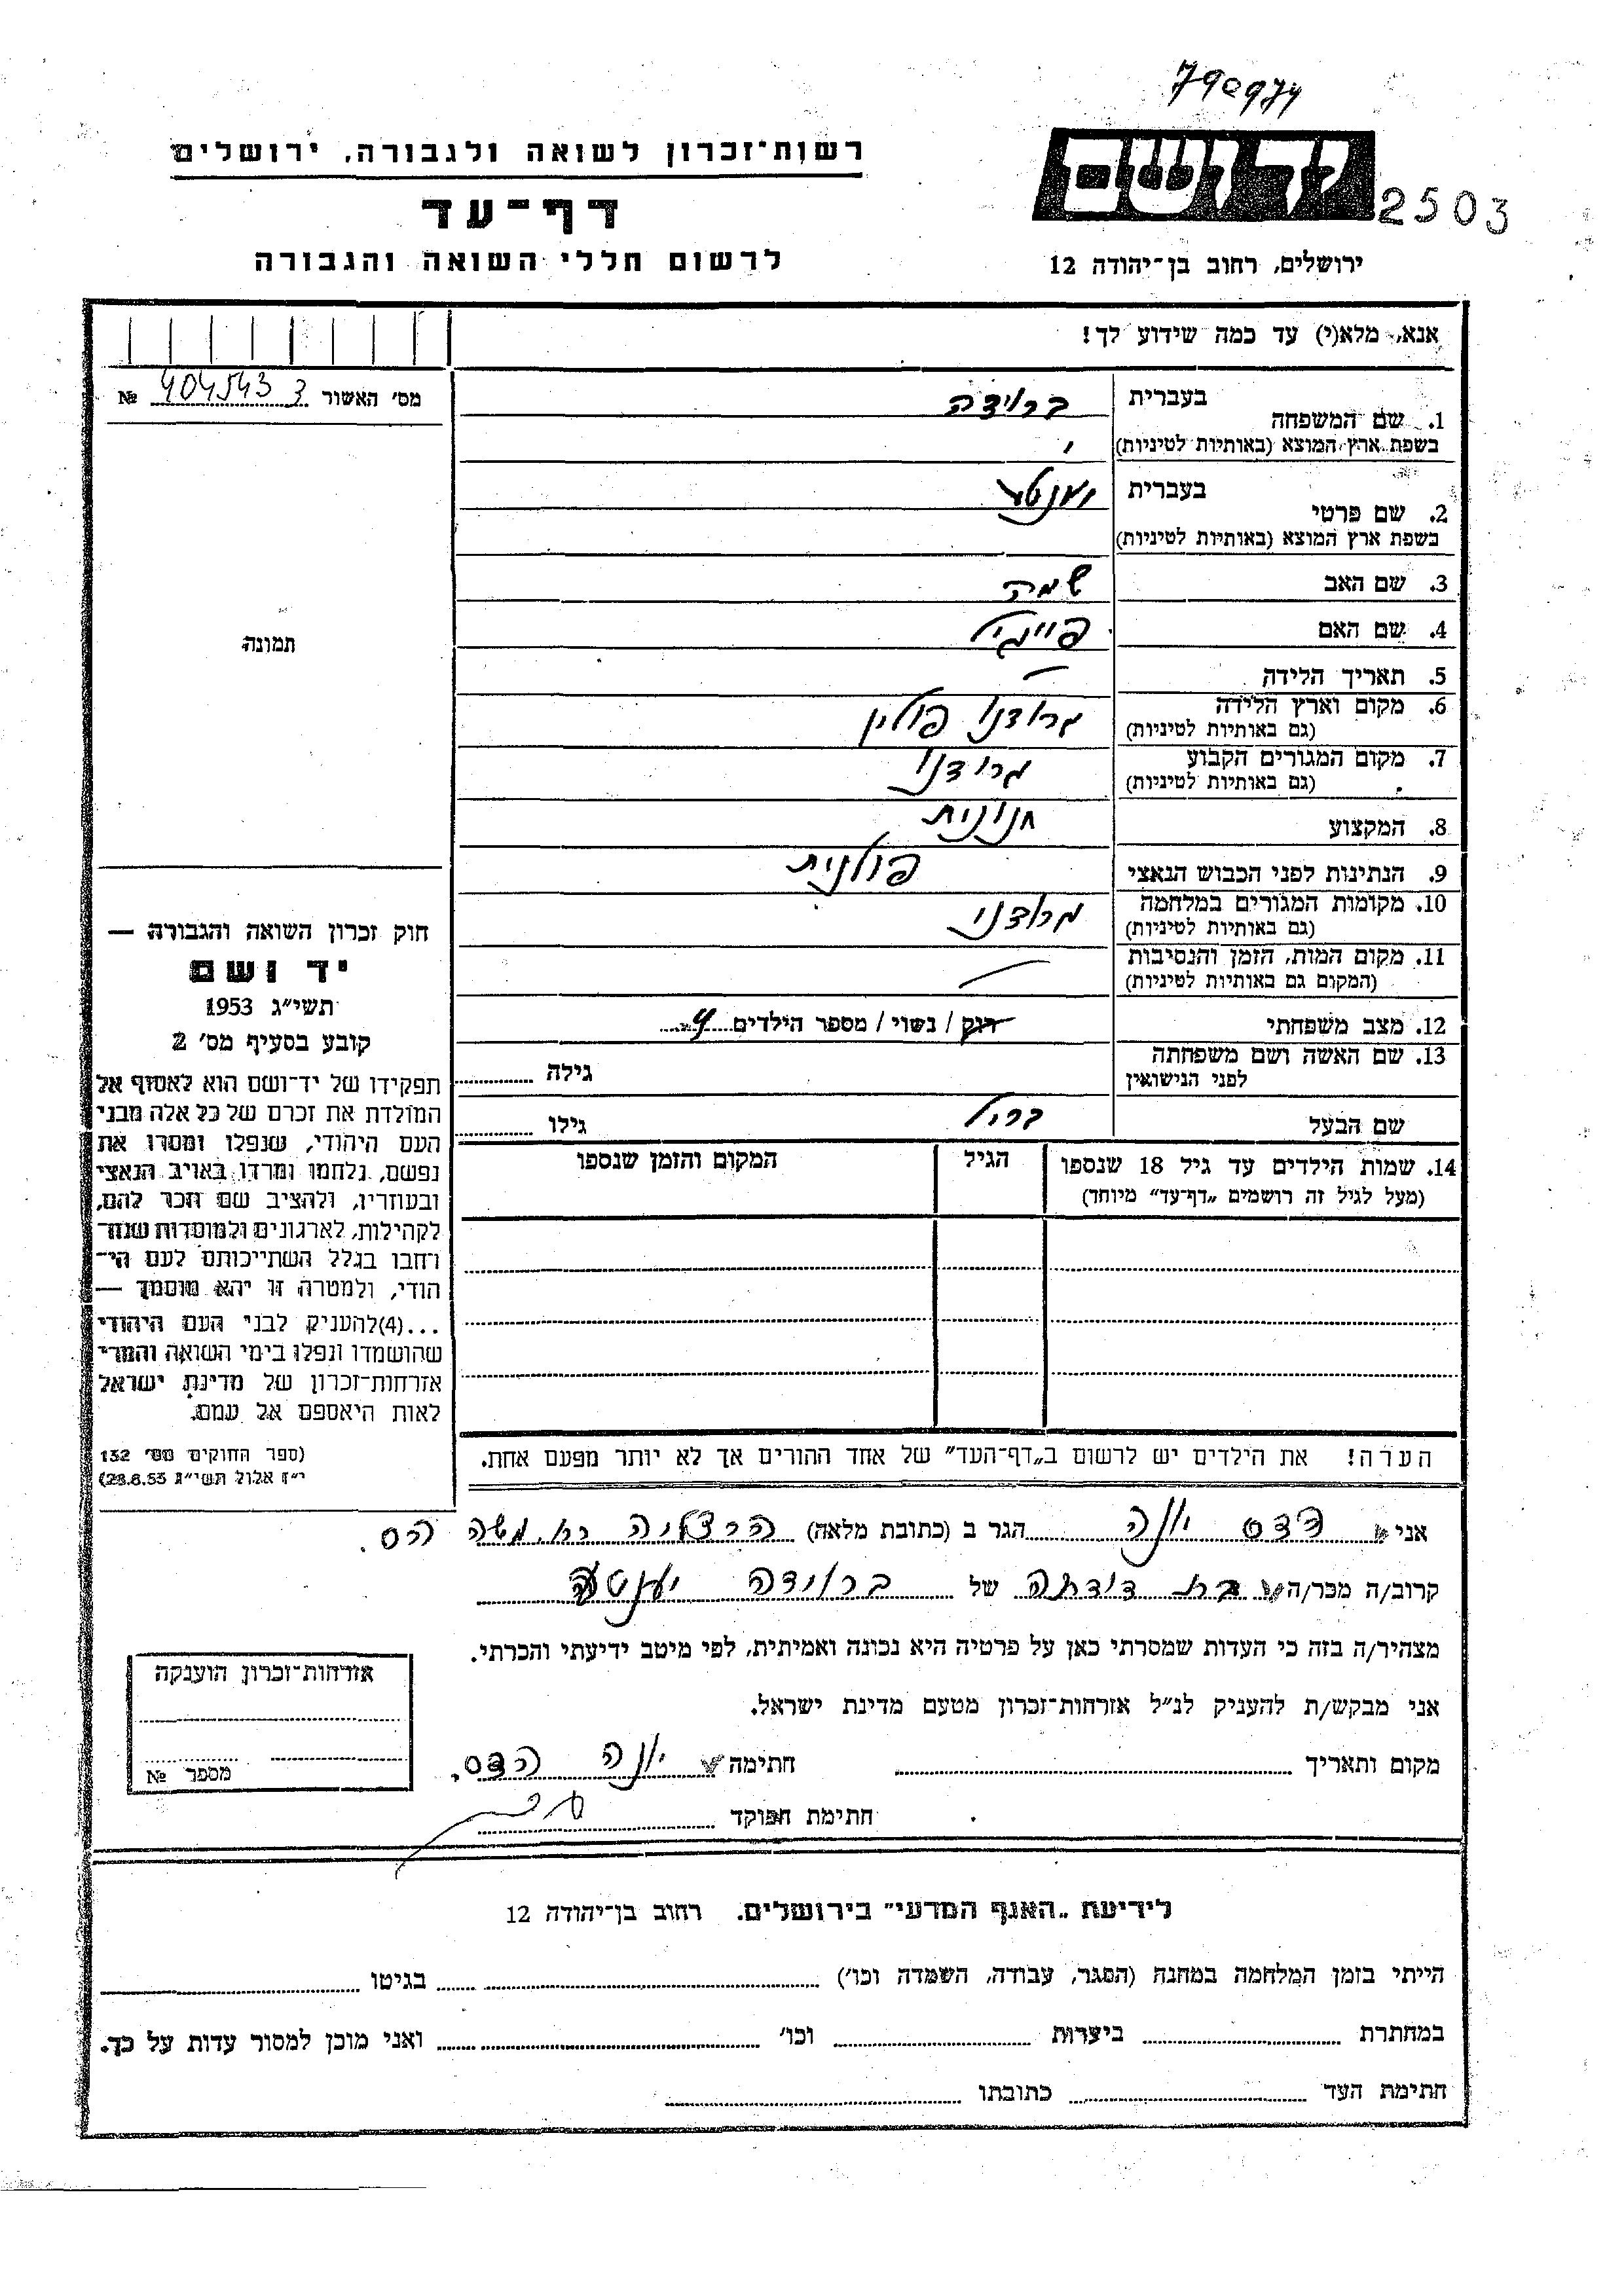 790974
יד ושם
2503
רשות־זכרון לשואה ולגבורה, ירושלים
דף־עד
לרשום חללי השואה והגבורה
ירושלים, רחוב בן־יהודה 12
אנא, מלא(י) עד כמה שידוע לך!
מס׳ האשור 404543 3 №
1. שם המשפחה
בעברית ברוידה
בשפת ארץ המוצא (באותיות לטיניות)
2. שם פרטי
בעברית יענטע
בשפת ארץ המוצא (באותיות לטיניות)
3. שם האב שמה
4. שם האם פייגיל
5. תאריך הלידה —
6. מקום וארץ הלידה גרודנו פולין
(גם באותיות לטיניות)
7. מקום המגורים הקבוע גרודנו
(גם באותיות לטיניות)
8. המקצוע חנונית
9. הנתינות לפני הכבוש הנאצי פולנית
10. מקומות המגורים במלחמה גרודנו
(גם באותיות לטיניות)
11. מקום המות, הזמן והנסיבות —
(המקום גם באותיות לטיניות)
12. מצב משפחתי רוק / נשוי / מספר הילדים 4
13. שם האשה ושם משפחתה גילה
לפני הנישואין
שם הבעל בריל גילו
14. שמות הילדים עד גיל 18 שנספו הגיל המקום והזמן שנספו
(מעל לגיל זה רושמים „דף־עד״ מיוחד)
תמונה
חוק זכרון השואה והגבורה —
יד ושם
תשי״ג 1953
קובע בסעיף מס׳ 2
תפקידו של יד־ושם הוא לאסוף אל
המולדת את זכרם של כל אלה מבני
העם היהודי, שנפלו ומסרו את
נפשם, נלחמו ומרדו באויב הנאצי
ובעוזריו, ולהציב שם וזכר להם,
לקהילות, לארגונים ולמוסדות שנח־
רחבו בגלל השתייכותם לעם הי־
הודי, ולמטרה זו יהא מוסמך —
...(4)להעניק לבני העם היהודי
שהושמדו ונפלו בימי השואה והמרי
אזרחות־זכרון של מדינת ישראל
לאות היאספם אל עמם.
(ספר החוקים מס׳ 132
י״ז אלול תשי״ג 28.8.53)
הערה! את הילדים יש לרשום ב„דף־העד״ של אחד ההורים אך לא יותר מפעם אחת.
אני הדס יונה הגר ב (כתובת מלאה) הרצליה רח. משה הס.
קרוב/ה מכר/ה בת דודתה של ברוידה יענטע
מצהיר/ה בזה כי העדות שמסרתי כאן על פרטיה היא נכונה ואמיתית, לפי מיטב ידיעתי והכרתי.
אני מבקש/ת להעניק לנ״ל אזרחות־זכרון מטעם מדינת ישראל.
מקום ותאריך חתימה יונה הדס.
חתימת הפוקד
אזרחות־זכרון הוענקה
מספר №
לידיעת „האגף המדעי״ בירושלים. רחוב בן־יהודה 12
הייתי בזמן המלחמה במחנה (הסגר, עבודה, השמדה וכו׳) בגיטו
במחתרת ביערות וכו׳ ואני מוכן למסור עדות על כך.
חתימת העד כתובתו